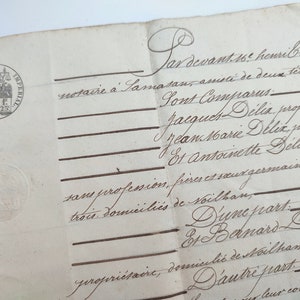 Par devant Me henri
notaire à Samatan, assisté de deux té
Sont Comparus
Jacques Délix pro
Jean Marie Délix
Et antoinette Déli
sans profession, frères et sœur germain
trois domiciliés de Noilhan,
D'une part
Et Bernard
propriétaire, domicilié de Noilhan
D'autre part